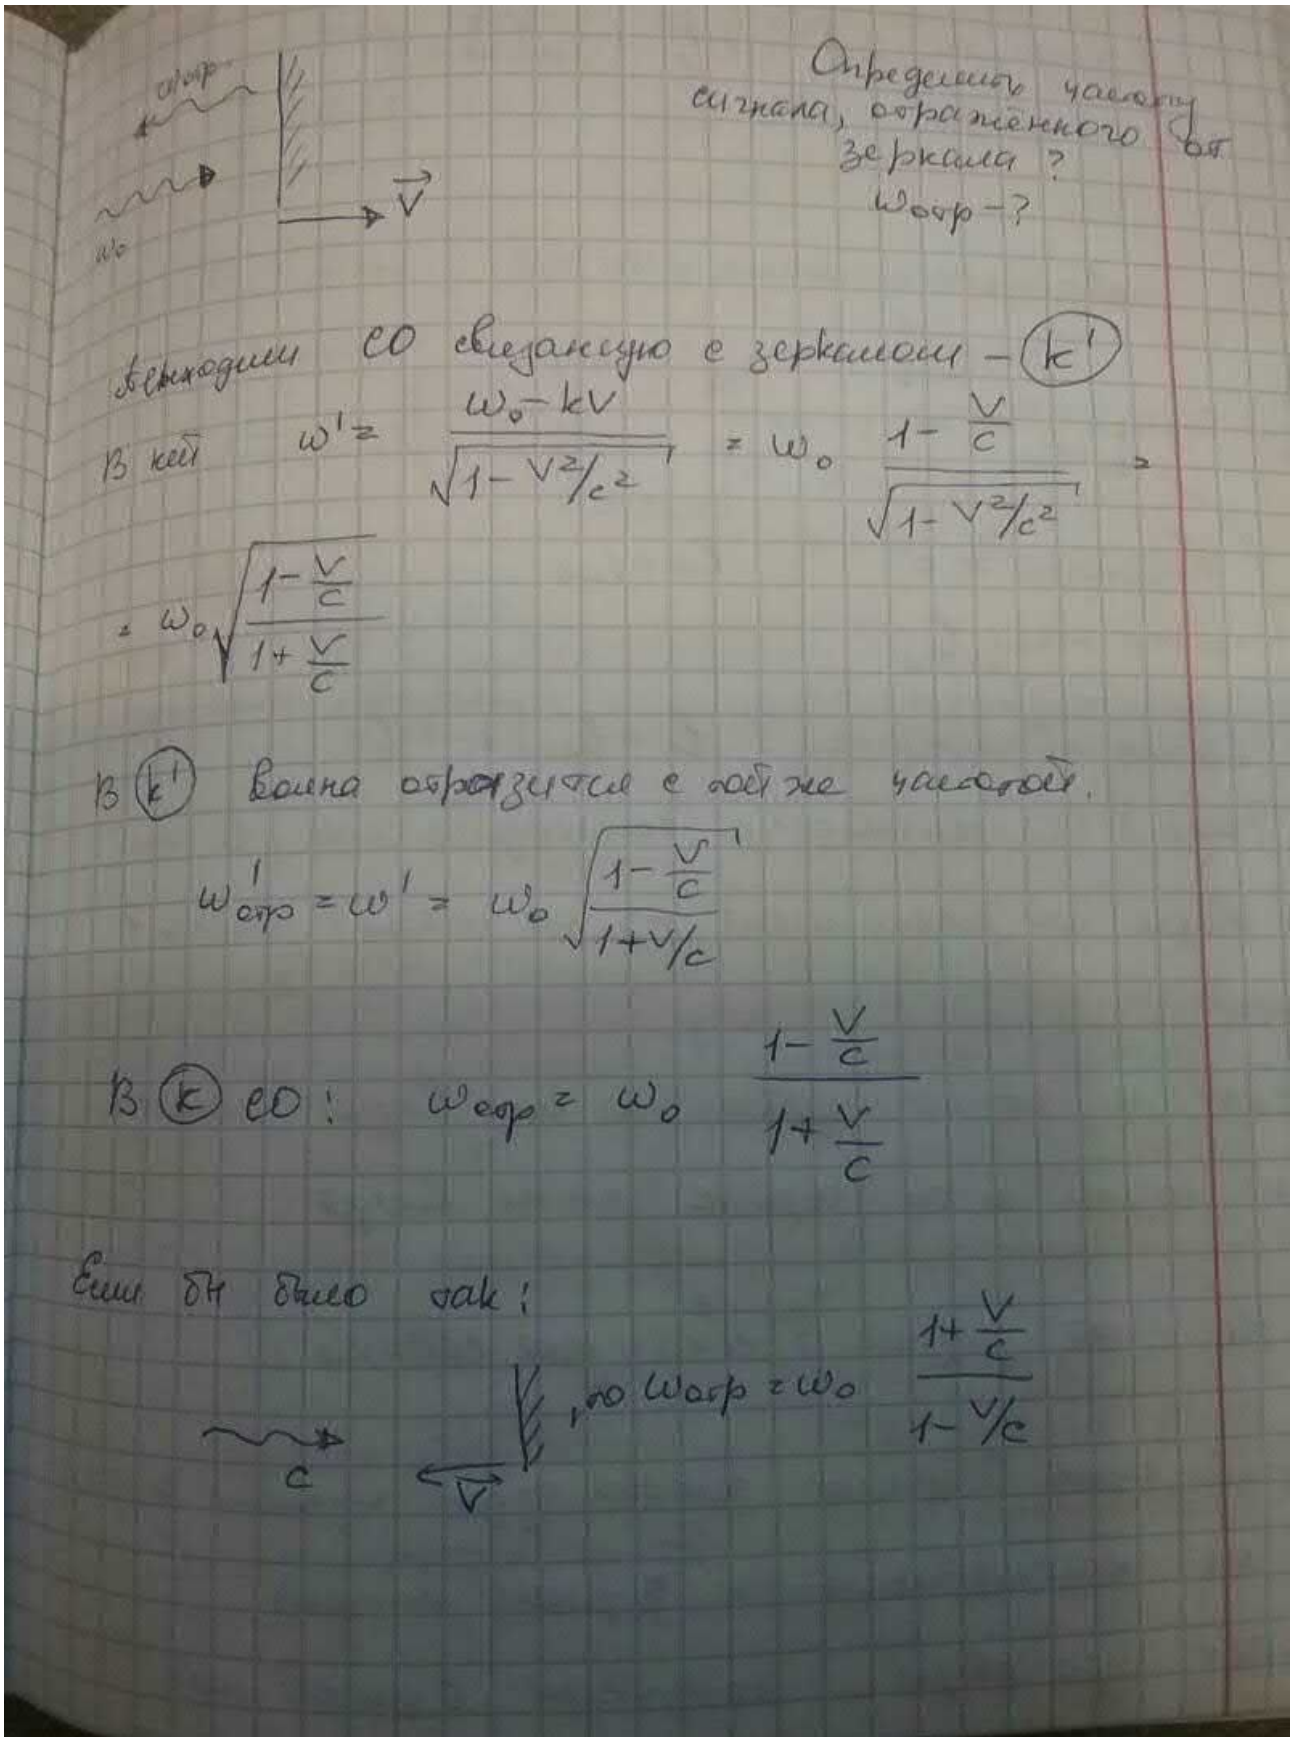 ωотр
ω₀
V⃗
Определить частоту
сигнала, отражённого от
зеркала ?
ωотр - ?
СО связанную с зеркалом - k'
В ней ω' = (ω₀ - kV)/√(1 - V²/c²) = ω₀ (1 - V/c)/√(1 - V²/c²) =
= ω₀ √((1 - V/c)/(1 + V/c))
В k' волна отразится с той же частотой.
ω'отр = ω' = ω₀ √((1 - V/c)/(1 + V/c))
В k СО: ωотр = ω₀ (1 - V/c)/(1 + V/c)
Если бы было так:
, то ωотр = ω₀ (1 + V/c)/(1 - V/c)
c
V⃗